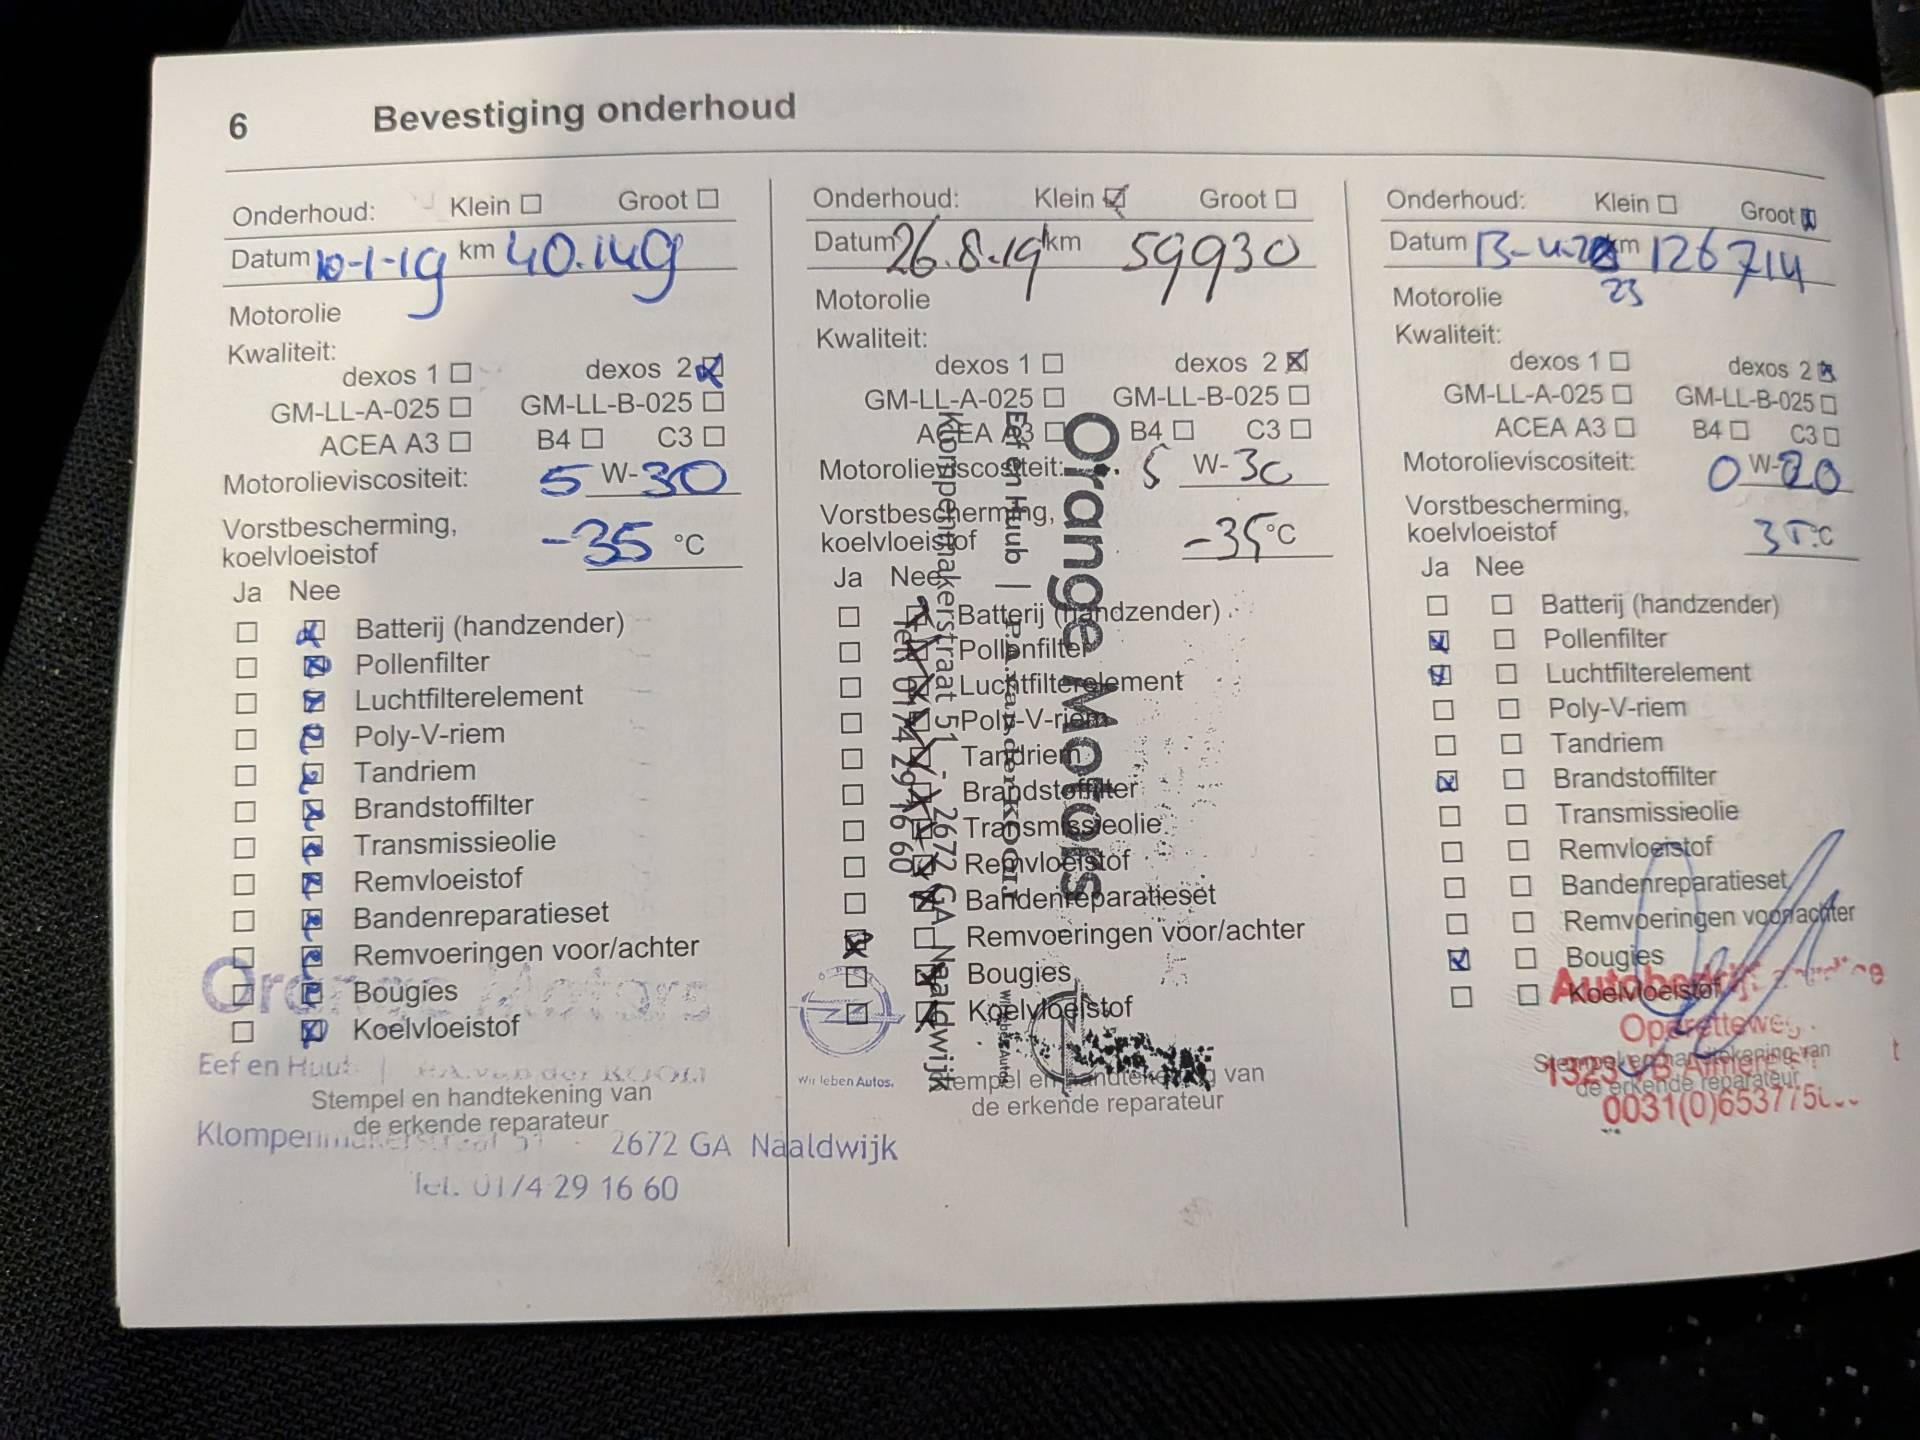 6 Bevestiging onderhoud
Onderhoud: Klein ☐ Groot ☐
Datum 10-1-19 km 40.149
Motorolie
Kwaliteit:
dexos 1 ☐ dexos 2 ☒
GM-LL-A-025 ☐ GM-LL-B-025 ☐
ACEA A3 ☐ B4 ☐ C3 ☐
Motorolieviscositeit: 5 W-30
Vorstbescherming,
koelvloeistof -35 °C
Ja Nee
☐ ☒ Batterij (handzender)
☐ ☒ Pollenfilter
☐ ☒ Luchtfilterelement
☐ ☒ Poly-V-riem
☐ ☒ Tandriem
☐ ☒ Brandstoffilter
☐ ☒ Transmissieolie
☐ ☒ Remvloeistof
☐ ☒ Bandenreparatieset
☐ ☒ Remvoeringen voor/achter
☐ ☒ Bougies
☐ ☒ Koelvloeistof
Orange Motors
Eef en Huub | P.A. van der KOOIJ
Stempel en handtekening van
de erkende reparateur
Klompenmakerstraat 51 - 2672 GA Naaldwijk
Tel. 0174 29 16 60
Onderhoud: Klein ☒ Groot ☐
Datum 26.8.19 km 59930
Motorolie
Kwaliteit:
dexos 1 ☐ dexos 2 ☒
GM-LL-A-025 ☐ GM-LL-B-025 ☐
ACEA A3 ☐ B4 ☐ C3 ☐
Motorolieviscositeit: 5 W-30
Vorstbescherming,
koelvloeistof -35 °C
Ja Nee
☐ ☒ Batterij (handzender)
☐ ☒ Pollenfilter
☐ ☒ Luchtfilterelement
☐ ☒ Poly-V-riem
☐ ☒ Tandriem
☐ ☒ Brandstoffilter
☐ ☒ Transmissieolie
☐ ☒ Remvloeistof
☐ ☒ Bandenreparatieset
☒ ☐ Remvoeringen voor/achter
☐ ☒ Bougies
☐ ☒ Koelvloeistof
OPEL
Wir leben Autos.
Stempel en handtekening van
de erkende reparateur
Orange Motors
Eef en Huub | P.A. van der KOOIJ
Klompenmakerstraat 51 - 2672 GA Naaldwijk
Tel. 0174 29 16 60
Wir leben Autos
Onderhoud: Klein ☐ Groot ☒
Datum 13-4- km 126714
23
Motorolie
Kwaliteit:
dexos 1 ☐ dexos 2 ☒
GM-LL-A-025 ☐ GM-LL-B-025 ☐
ACEA A3 ☐ B4 ☐ C3 ☐
Motorolieviscositeit: 0 W-20
Vorstbescherming,
koelvloeistof 35 °C
Ja Nee
☐ ☐ Batterij (handzender)
☒ ☐ Pollenfilter
☒ ☐ Luchtfilterelement
☐ ☐ Poly-V-riem
☐ ☐ Tandriem
☒ ☐ Brandstoffilter
☐ ☐ Transmissieolie
☐ ☐ Remvloeistof
☐ ☐ Bandenreparatieset
☐ ☐ Remvoeringen voor/achter
☒ ☐ Bougies
☐ ☐ Koelvloeistof
Autobedrijf
Operetteweg
Stempel en handtekening van
1323 Almere
de erkende reparateur
0031(0)653775